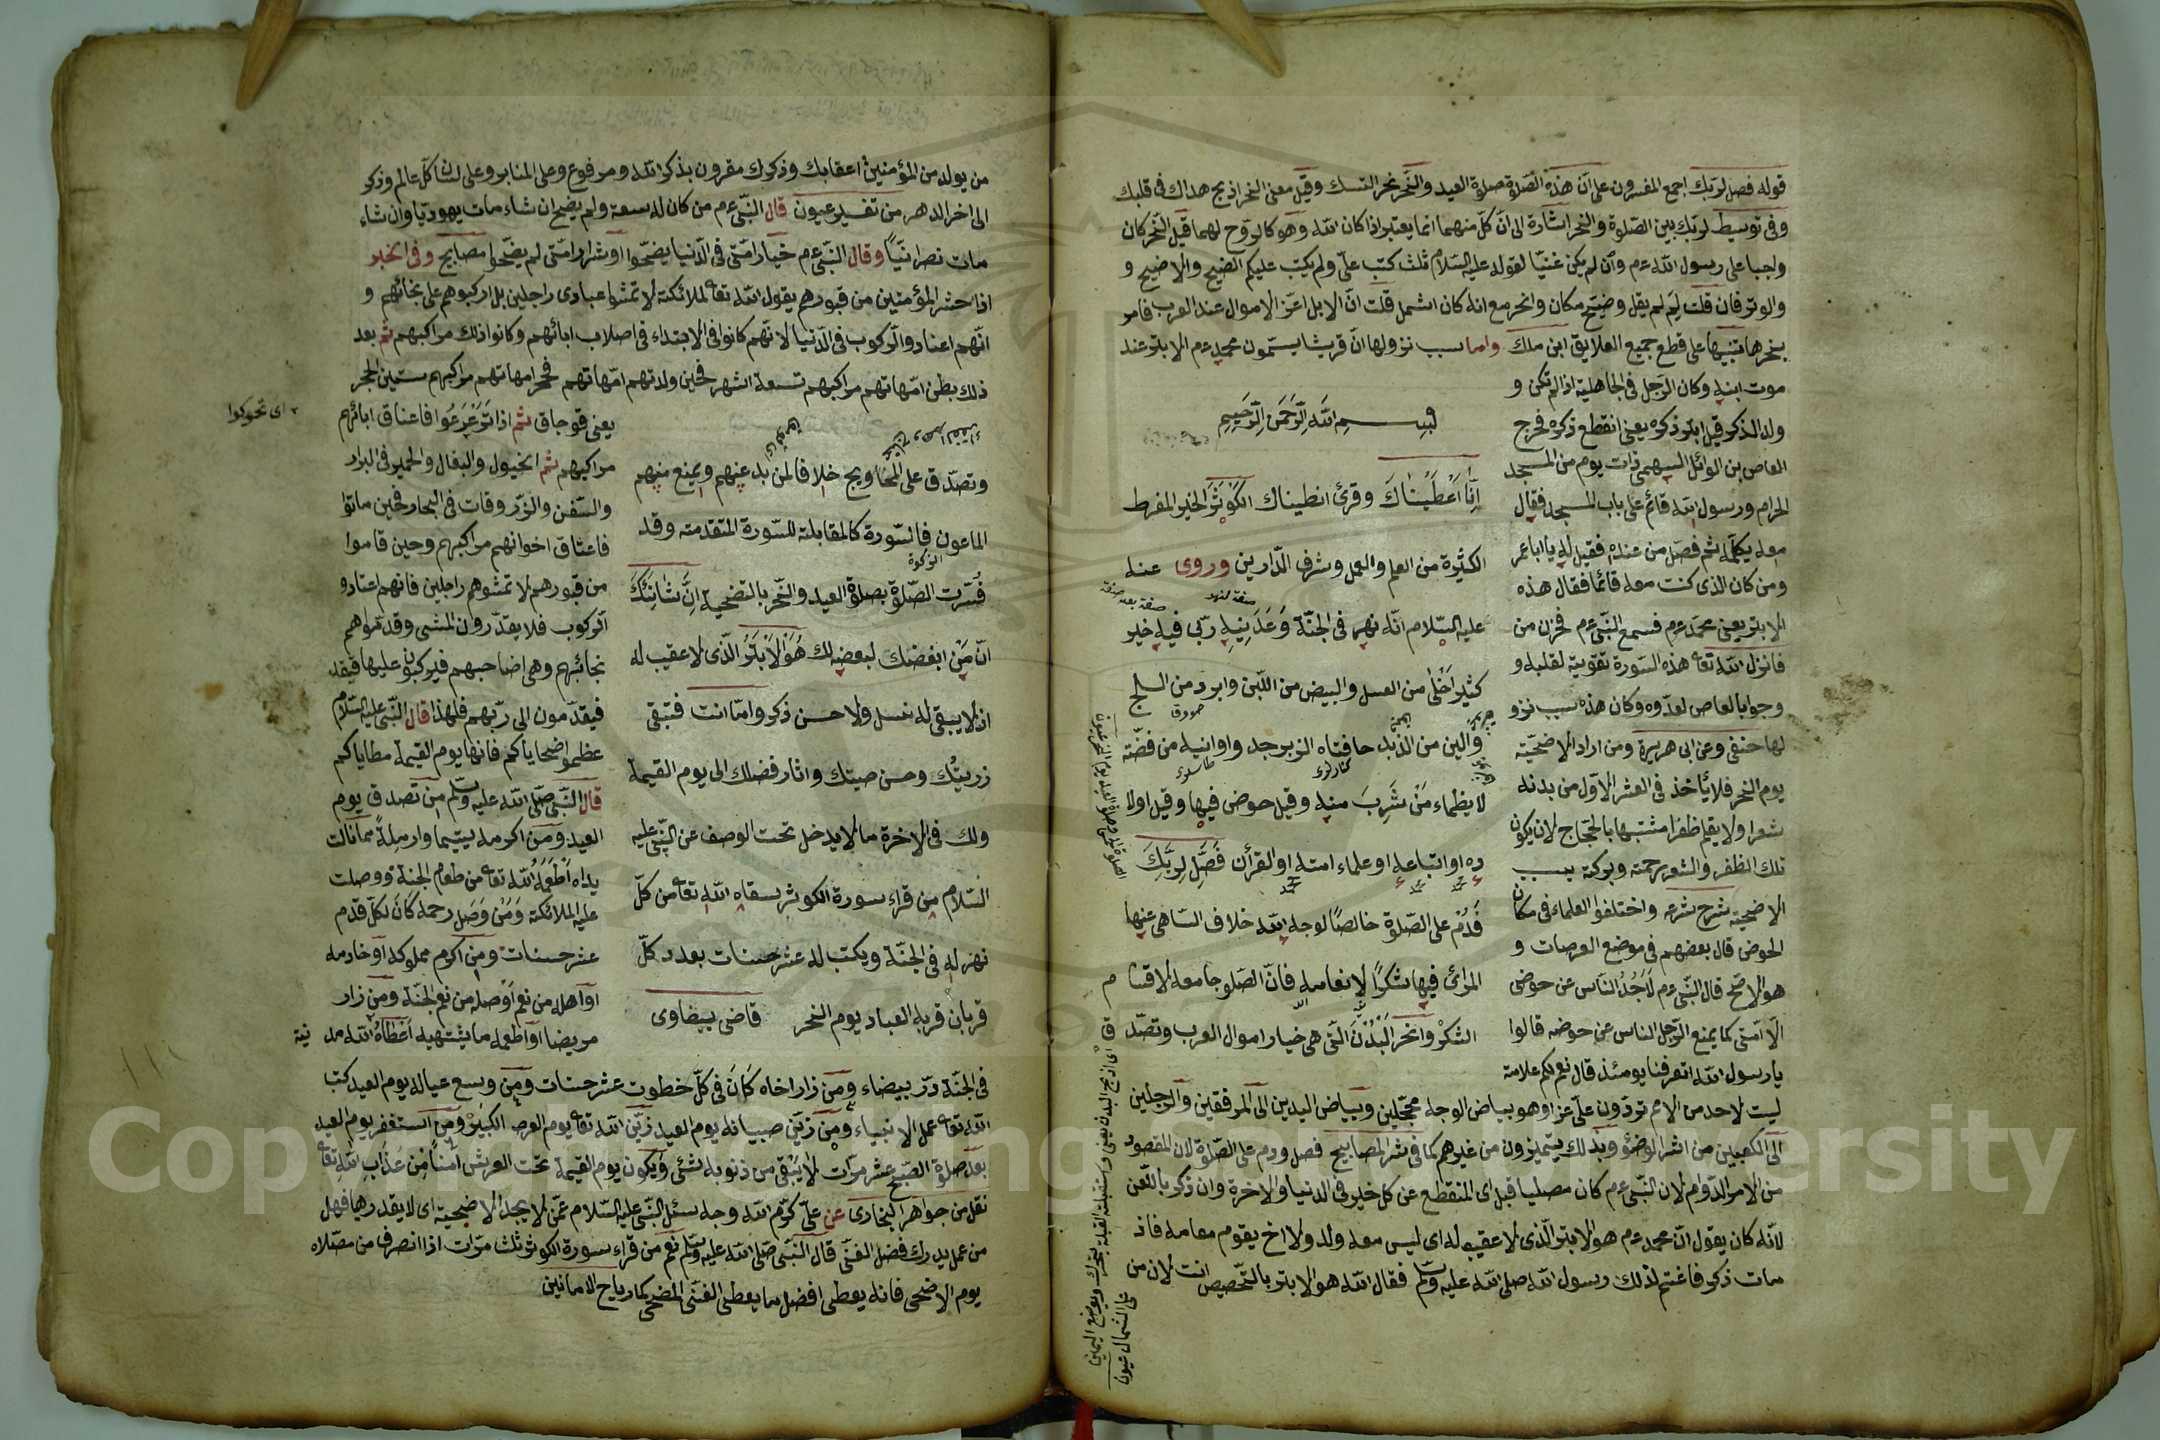 قوله فصل لربك اجمع المفسرون على ان هذه الصلوة صلوة العيد والنحر نحر النسك وقيل معنى النحر اذبح هداك فى قلبك
وفى توسيط لربك بين الصلوة والنحر اشارة الى ان كل منهما انما يعتبر اذا كان الله وهو كالروح لهما قيل النحر كان
واجبا على رسول الله عم وان لم يكن غنيا لقوله عليه السلام ثلث كتب على ولم يكتب عليكم الضحى والاضحى و
والوتر فان قلت لم لم يقل وضح مكان وانحر مع انه كان اشمل قلت ان الابل اعز الاموال عند العرب فامر
بنحرها تنبيها على قطع جميع العلايق ابن ملك واما سبب نزولها ان قريشا يسمون محمد عم الابتر عند
موت ابنه وكان الرجل فى الجاهلية اذا لم تكن و
ولد الذكر قيل ابتر ذكره يعنى انقطع ذكره فخرج
العاص بن الوائل السهمى ذات يوم من المسجد
الحرام ورسول الله قائم على باب المسجد فقال
معه يكلمه ثم فصل من عنده فقيل له يا ابا عمر
ومن كان الذى كنت معه قائما فقال هذه
الابتر يعنى محمد عم فسمع النبى عم فحزن من
فانزل الله تعا هذه السورة تقوية لقلبه و
وجوابا لعاص لعدوه وكان هذه سبب نزو
لها حنفى وعن ابى هريرة ومن اراد الاضحية
يوم النحر فلا يأخذ فى العشر الاول من بدنه
شعرا ولا يقلم ظفرا متشبها بالحجاج لان يكون
تلك الظفر والشعر رحمة وبركة بسبب
الاضحية شرح شرعه واختلفوا العلماء فى مكان
الحوض قال بعضهم فى موضع العرصات و
هو الاصح قال النبى عم لاجد الناس عن حوضى
الا امتى كما يمنع الرجل الناس عن حوضه قالوا
يا رسول الله اتعرفنا يومئذ قال نعم لكم علامة
بسم الله الرحمن الرحيم
انا اعطيناك وقرئ انطيناك الكوثر الخير المفرط
الكثيرة من العلم والعمل وشرف الدارين وروى عنه
عليه السلام انه نهر فى الجنة وعدنيه ربى فيه خير
كثير احلى من العسل والبيض من اللبن وابرد من الثلج
والين من الزبد حافتاه الزبرجد واوانيه من فضة
لا يظماء من شرب منه وقيل حوض فيها وقيل اولا
ده او اتباعه او علماء امته او القرأن فصل لربك
فدم على الصلوة خالصا لوجه الله خلاف الساهى عنها
المرائى فيها شكرا لانعامه فان الصلو جامعة لاقسا م
الشكر وانحر البدن التى هى خيار اموال العرب وتصد ق
ليست لاحد من الامم تردون على غرا وهو بياض الوجه محجلين وبياض اليدين الى المرفقين والرجلين
الى الكعبين من اثر الوضؤ وبذلك يتميزون من غيرهم كما فى شر المصابيح فصل ودم على الصلوة لان المقصود
من الامر الدوام لان النبى عم كان مصليا قبل اى المنقطع عن كل خير فى الدنيا والاخرة وان ذكر باللعن
لانه كان يقول ان محمد عم هو الابتر الذى لا عقب له اى ليس معه ولد ولا اخ يقوم مقامه فاذ
مات ذكر فاغتم لذلك رسول الله صلى الله عليه وسلم فقال الله هو الابتر بالتخصيص انت لان من
من يولد من المؤمنين اعقابك وذكرك مقرون بذكر الله ومرفوع وعلى المنابر وعلى لسان كل عالم وذكر
الى اخر الدهر من تفسير عيون قال النبى عم من كان له سعة ولم يضح ان شاء مات يهوديا وان شاء
مات نصرانيا وقال النبى عم خيار امتى فى الدنيا يضحوا وشرار امتى لم يضحوا مصابيح وفى الخبر
اذا حشر المؤمنين من قبورهم يقول الله تعا لملائكة لا تمشوا عبادى راجلين بل اركبوهم على نجائبهم و
انهم اعتادوا الركوب فى الدنيا لانهم كانوا فى الابتداء فى اصلاب ابائهم وكانوا ذلك مراكبهم ثم بعد
ذلك بطن امهاتهم مراكبهم تسعة اشهر فحين ولدتهم امهاتهم فحجر امهاتهم مراكبهم سنتين الحجر
يعنى قوجاق ثم اذا ترعرعوا فاعناق ابائهم
مراكبهم ثم الخيول والبغال والحمير فى البرار
والسفن والزورقات فى البحار فحين ماتوا
فاعتاق اخوانهم مراكبهم وحين قاموا
من قبورهم لا تمشوهم راجلين فانهم اعتادو
الركوب فلا يقدرون المشى وقدموا هم
نجائبهم وهى اضاحيهم فيركبون عليها فيقد
فيقدمون الى ربهم فلهذا قال النبى عليه السلام
عظموا ضحاياكم فانها يوم القيمة مطاياكم
قال النبى صلى الله عليه وسلم من تصدق يوم
العيد ومن اكرمه يتيما وارملة مما نالت
يداه اطعمه الله تعا من طعام الجنة ووصلت
عليه الملائكة ومن وصل رحمه كان لكل قدم
عشر حسنات ومن اكرم مملوكه او خادمه
او اهله من نعم اوصله من نعم الجنة ومن زار
مريضا او اطعمه ما يشتهيه اعطاه الله مد ينة
اى تحركوا
وتصدق على المحاويج خلافا لمن يدعهم ويمنع منهم
الماعون فالسورة كالمقابلة للسورة المتقدمة وقد
الزكوة
فسرت الصلوة بصلوة العيد والنحر بالتضحية ان شانئك
ان من ابغضك لبغضه لك هو الابتر الذى لا عقب له
اذ لا يبقى له نسل ولا حسن ذكر واما انت فتبقى
ذريتك وحسن صيتك واثار فضلك الى يوم القيمة
ولك فى الاخرة ما لا يدخل تحت الوصف عن النبى عليه
السلام من قراء سورة الكوثر سقاه الله تعا من كل
نهر له فى الجنة ويكتب له عشر حسنات بعدد كل
قربان قربه العباد يوم النحر قاضى بيضاوى
فى الجنة در بيضاء ومن زار اخاه كان فى كل خطوت عشر حسنات ومن وسع عياله يوم العيد كتب
الله تعا عمل الانبياء ومن زين صبيانه يوم العيد زين الله تعا يوم العرض الكبير ومن استغفر يوم العيد
بعد صلوة الصبح عشر مرات لا يبقى من ذنوبه شئى ويكون يوم القيمة تحت العرش امنا من عذاب الله تعا
نقل من جواهر البخارى عن على كرم الله وجه سئل النبى عليه السلام عمن لا يجد الاضحية اى لا يقدرها فهل
من عمل يدرك فضل الغنى قال النبى صلى الله عليه وسلم نعم من قراء سورة الكوثر ثلث مرات اذا انصرف من مصلاه
يوم الاضحى فانه يعطى افضل ما يعطى الغنى المضحى كما رياح الامانين
Copyright © King Saud University